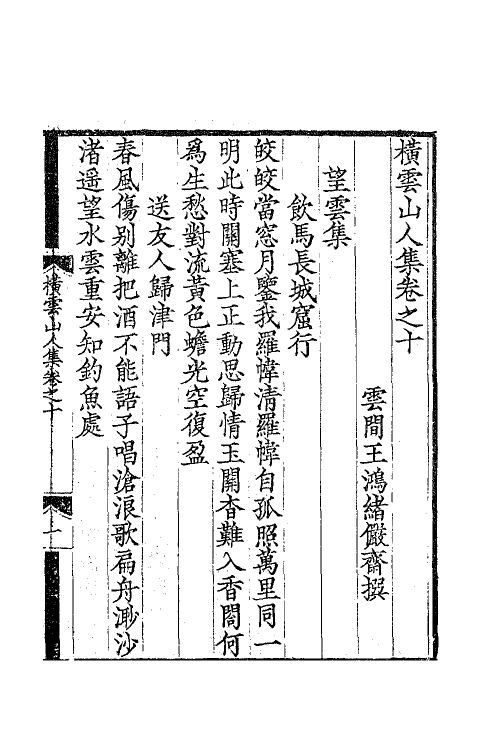 橫雲山人集卷之十
雲間王鴻緒儼齋撰
望雲集
飲馬長城窟行
皎皎當窓月鑒我羅幃清羅幃自孤照萬里同一
明此時關塞上正動思歸情玉關杳難入香閤何
爲生愁對流黃色蟾光空復盈
送友人歸津門
春風傷别離把酒不能語子唱滄浪歌扁舟渺沙
渚遥望水雲重安知釣魚處
橫雲山人集卷之十
一